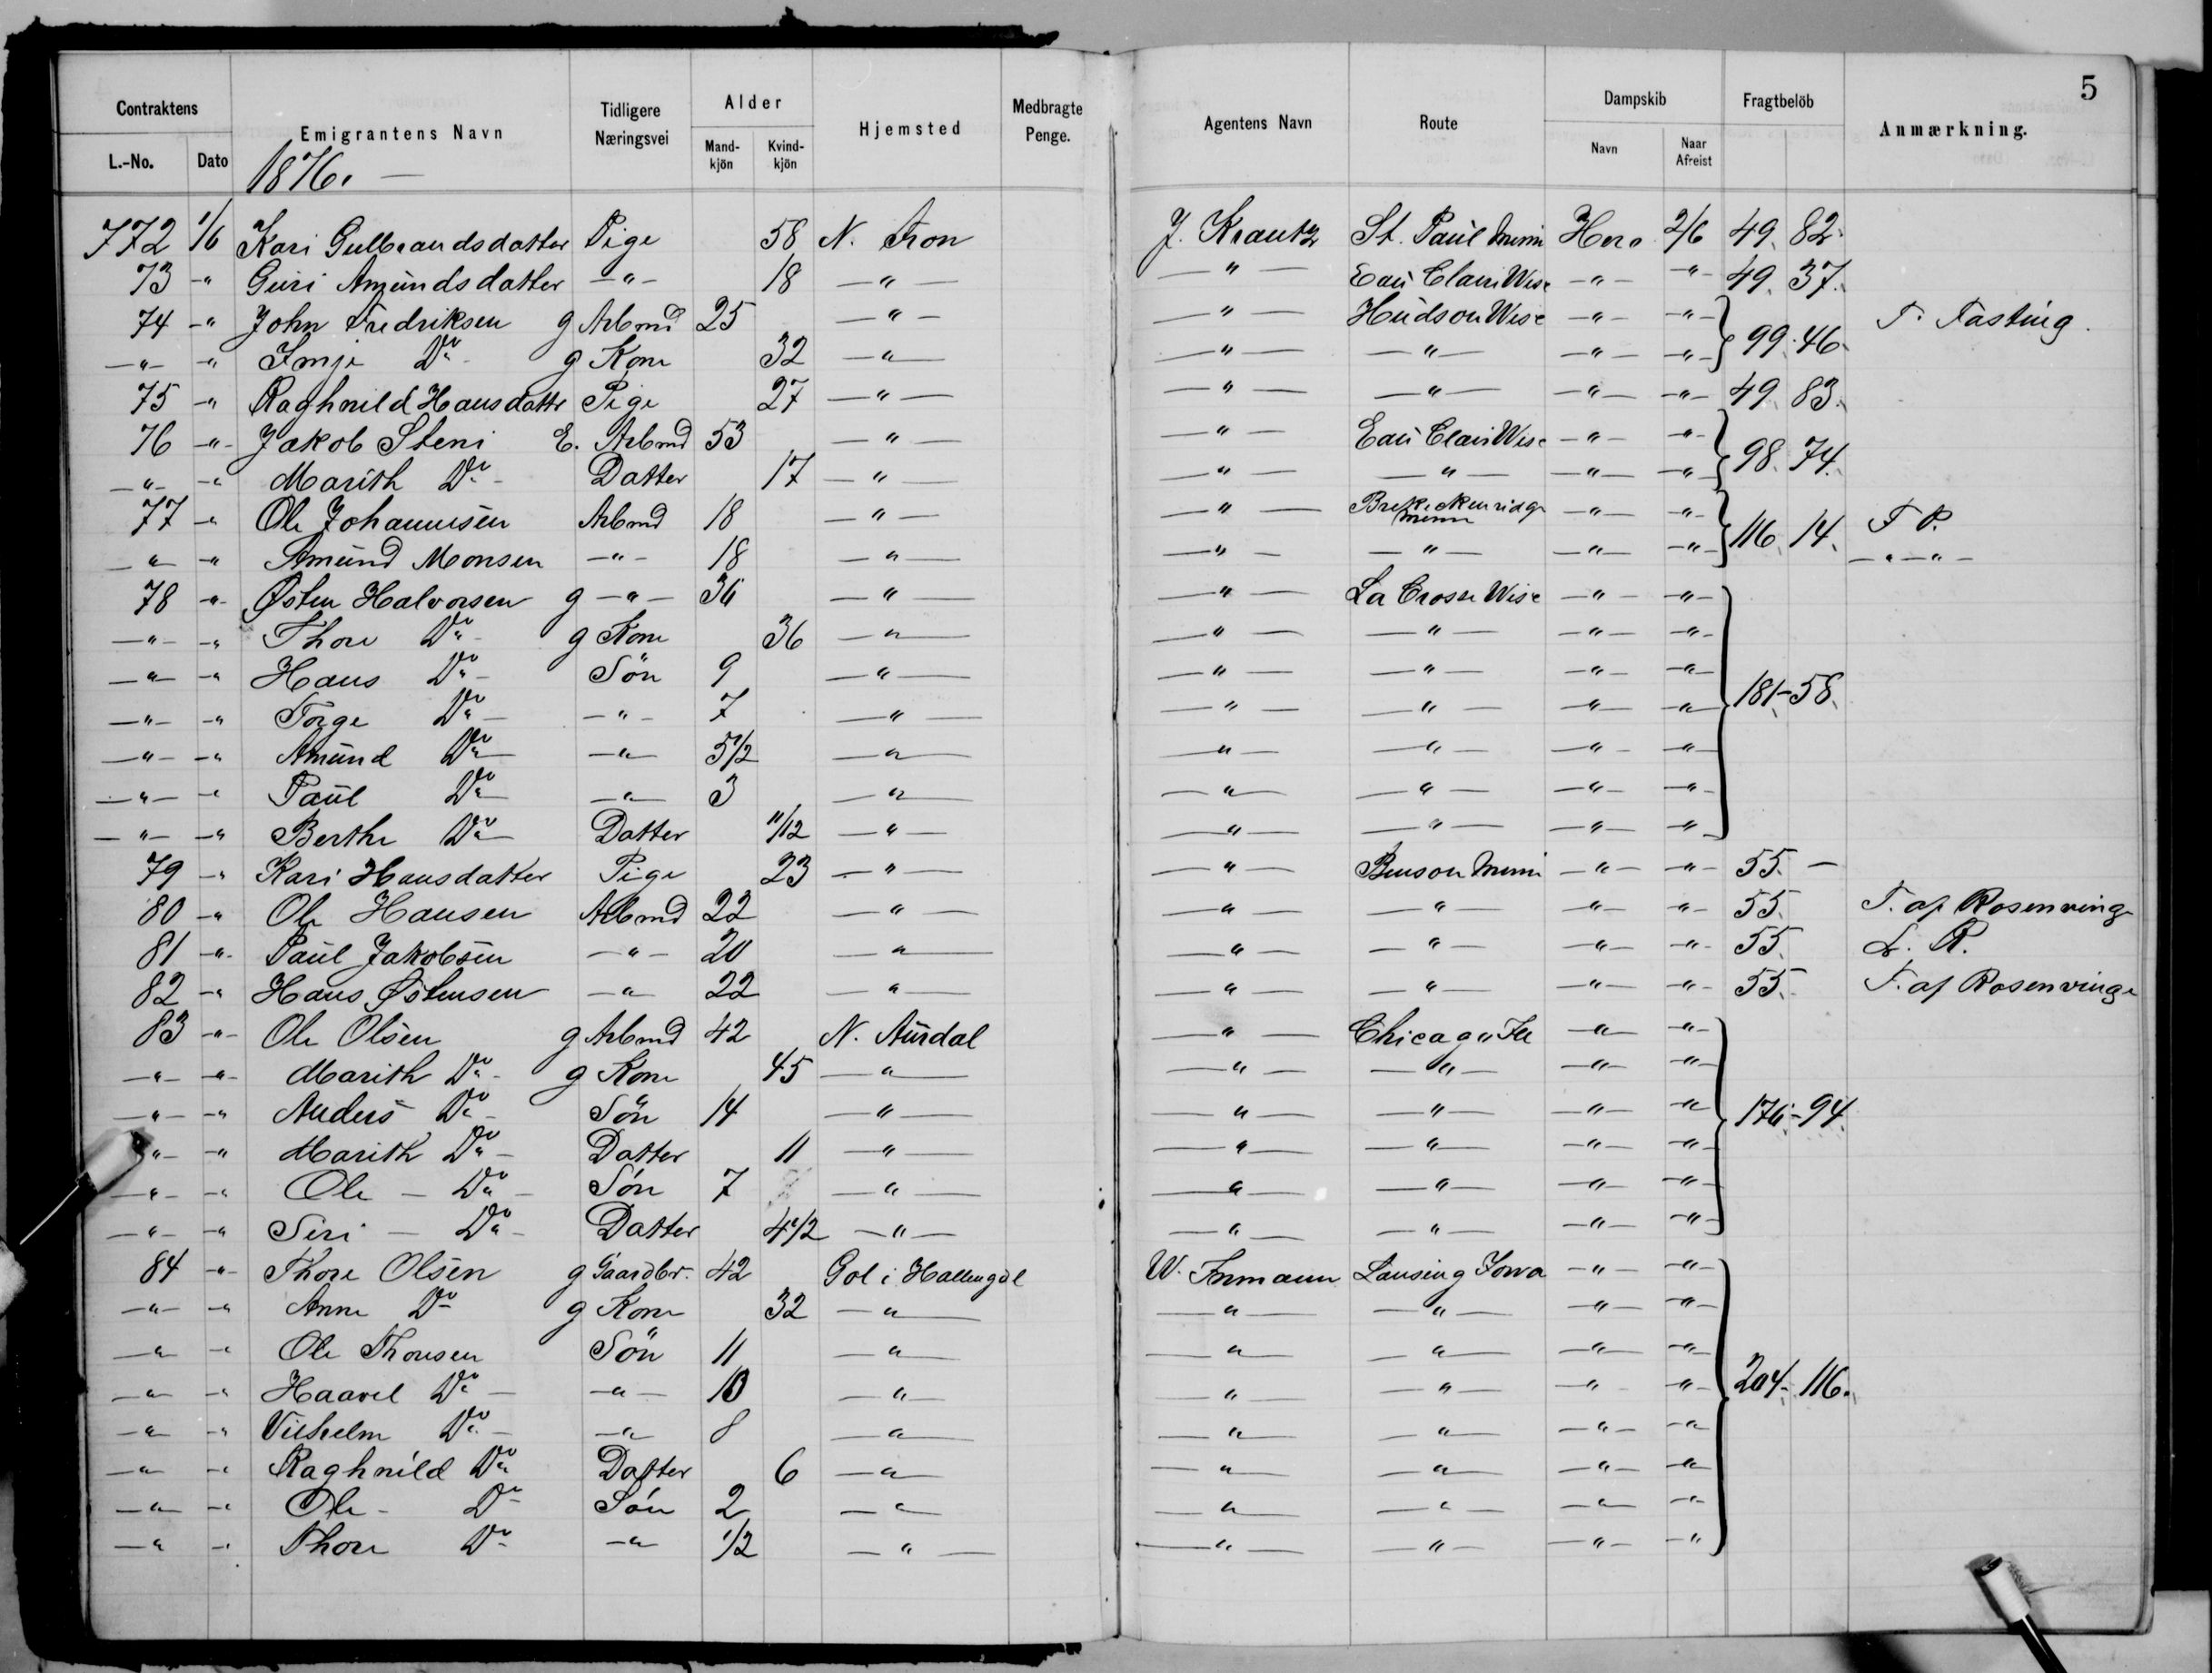 5
Contraktens | Emigrantens Navn | Tidligere Næringsvei | Alder | Hjemsted | Medbragte Penge. | Agentens Navn | Route | Dampskib | Fragtbelöb | Anmærkning.
L.-No. | Dato | Mand-kjön | Kvind-kjön | Navn | Naar Afreist
1876. —
772 1/6 Kari Gulbrandsdatter Pige 58 N. Fron J. Krantz St. Paul Minn Hero 2/6 49. 82.
73 -"- Guri Amundsdatter -"- 18 -"- -"- Eau Clair Wisc -"- -"- 49. 37.
74 -"- John Fredriksen g Arbmd 25 -"- -"- Hudson Wisc -"- -"- 99. 46. T. Fasting.
-"- -"- Imje Do g Kone 32 -"- -"- -"- -"- -"-
75 -"- Raghnild Hansdattr Pige 27 -"- -"- -"- -"- -"- 49. 83.
76 -"- Jakob Steni E. Arbmd 53 -"- -"- Eau Clair Wisc -"- -"- 98. 74.
-"- -"- Marith Do Datter 17 -"- -"- -"- -"- -"-
77 -"- Ole Johannesen Arbmd 18 -"- -"- Breckenridge Minn -"- -"- 116. 14. F P.
-"- -"- Amund Monsen -"- 18 -"- -"- -"- -"- -"- -"-"-
78 -"- Østen Halvorsen g -"- 36 -"- -"- La Crosse Wisc -"- -"- 181-58.
-"- -"- Thore Do g Kone 36 -"- -"- -"- -"- -"-
-"- -"- Hans Do Sön 9 -"- -"- -"- -"- -"-
-"- -"- Torge Do -"- 7 -"- -"- -"- -"- -"-
-"- -"- Amund Do -"- 5 1/2 -"- -"- -"- -"- -"-
-"- -"- Paul Do -"- 3 -"- -"- -"- -"- -"-
-"- -"- Berthe Do Datter 11/12 -"- -"- -"- -"- -"-
79 -"- Kari Hansdatter Pige 23 -"- -"- Benson Minn -"- -"- 55. —
80 -"- Ole Hansen Arbmd 22 -"- -"- -"- -"- -"- 55. T. af Rosenvinge
81 -"- Paul Jakobsen -"- 20 -"- -"- -"- -"- -"- 55. L. R.
82 -"- Hans Østensen -"- 22 -"- -"- -"- -"- -"- 55. T. af Rosenvinge
83 -"- Ole Olsen g Arbmd 42 N. Aurdal -"- Chicago Ill -"- -"- 176-94.
-"- -"- Marith Do g Kone 45 -"- -"- -"- -"- -"-
-"- -"- Anders Do Sön 14 -"- -"- -"- -"- -"-
-"- -"- Marith Do Datter 11 -"- -"- -"- -"- -"-
-"- -"- Ole - Do Sön 7 -"- -"- -"- -"- -"-
-"- -"- Siri - Do Datter 4 1/2 -"- -"- -"- -"- -"-
84 -"- Thore Olsen g Gaardbr. 42 Gol i Hallingdl W. Inmann Lansing Iowa -"- -"- 204-116.
-"- -"- Anne Do g Kone 32 -"- -"- -"- -"- -"-
-"- -"- Ole Thorsen Sön 11 -"- -"- -"- -"- -"-
-"- -"- Haavel Do -"- 10 -"- -"- -"- -"- -"-
-"- -"- Vilhelm Do -"- 8 -"- -"- -"- -"- -"-
-"- -"- Raghnild Do Datter 6 -"- -"- -"- -"- -"-
-"- -"- Ole - Do Sön 2 -"- -"- -"- -"- -"-
-"- -"- Thore Do -"- 1/2 -"- -"- -"- -"- -"-